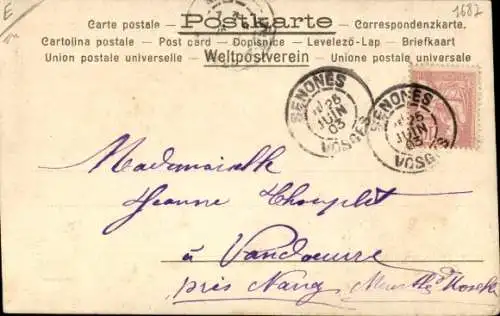 E
1687
Carte postale — Postkarte — Correspondenzkarte.
Cartolina postale — Post card — Dopisnice — Levelező-Lap — Briefkaart
Union postale universelle — Weltpostverein — Unione postale universale
SENONES
25
JUIN
03
VOSGES
SENONES
25
JUIN
03
VOSGES
Mademoiselle
Jeanne
à Vandoeuvre
près Nancy